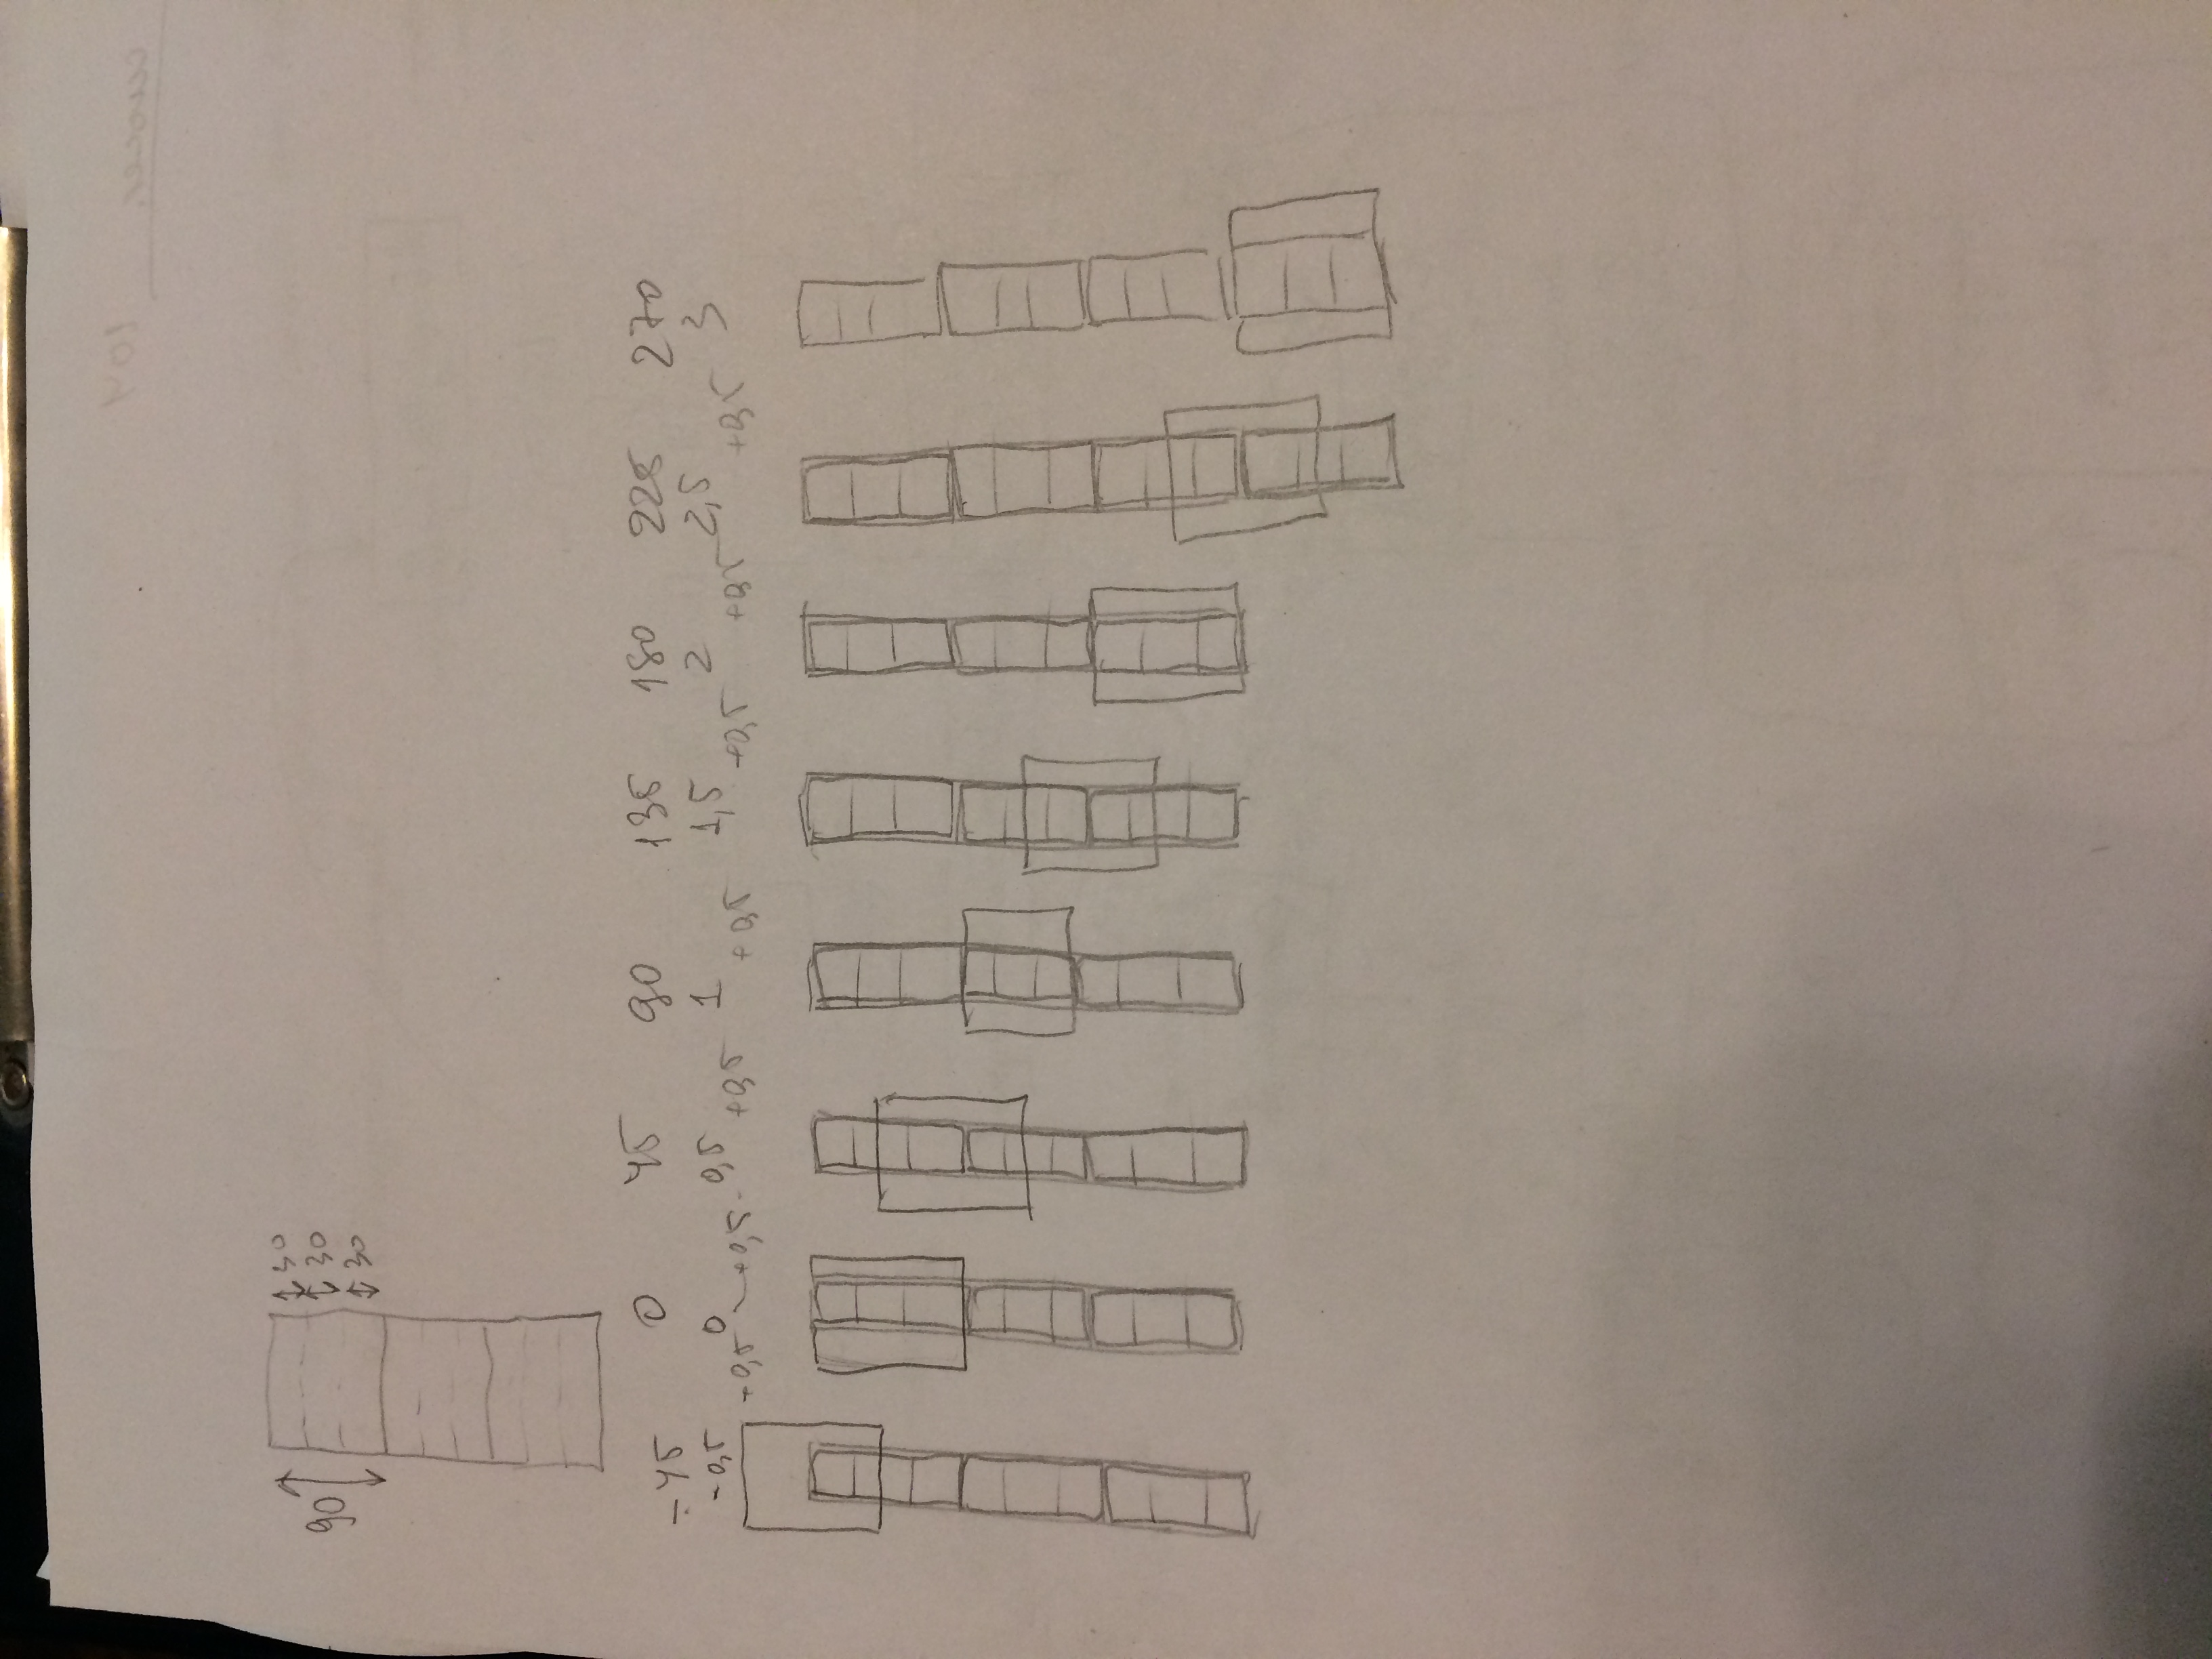 30
90 30
30
-45 0 45 90 135 180 225 270
-0,5 0 0,5 1 1,5 2 2,5 3
+0,5 +0,5 +0,5 +0,5 +0,5 +0,5 +0,5